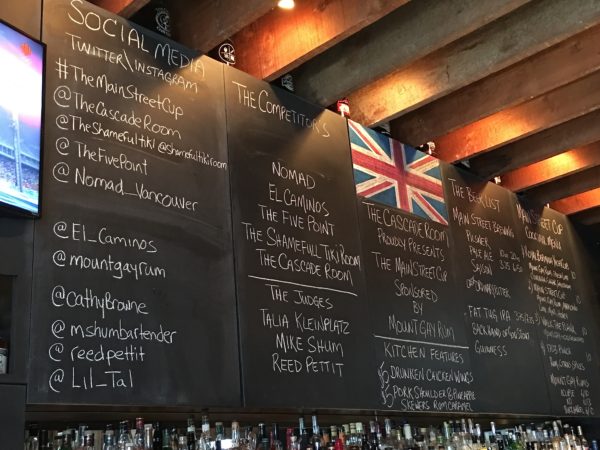 SOCIAL MEDIA
TWITTER\INSTAGRAM
#TheMainStreetCup
@TheCascadeRoom
@TheShamefultiki @shamefultikiroom
@TheFivePoint
@Nomad_Vancouver
@El_Caminos
@mountgayrum
@CathyBrowne
@mshumbartender
@reedpettit
@Lil_Tal
THE COMPETITOR'S
NOMAD
EL CAMINOS
THE FIVE POINT
THE SHAMEFULL TIKI ROOM
THE CASCADE ROOM
THE JUDGES
TALIA KLEINPLATZ
MIKE SHUM
REED PETTIT
THE CASCADE ROOM
PROUDLY PRESENTS
THE MAINSTREETCUP
SPONSORED
BY
MOUNT GAY RUM
KITCHEN FEATURES
DRUNKEN CHICKEN WINGS
PORK SHOULDER & PINEAPPLE
SKEWERS RUM CARAMEL
THE BEER LIST
MAIN STREET BREWING
PILSNER
PALE ALE
SAISON
FAT TUG IPA
GUINNESS
MAIN STREET CUP
COCKTAIL MENU
MOUNT GAY RUMS